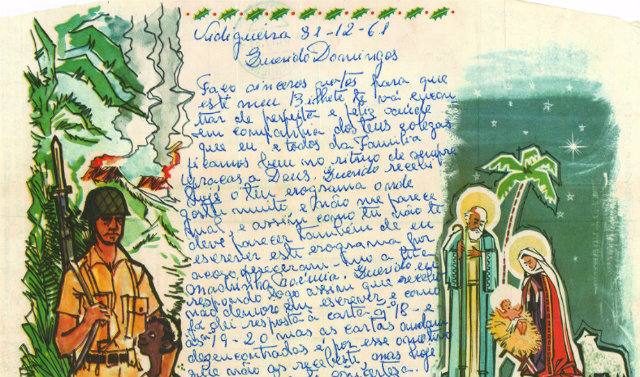 Vidigueira 31-12-61
Querido Domingos
Faço sinceros votos para que
este meu Bilhete te vá encon
trar de perfeita e feliz saúde
em companhia dos teus colegas
que eu e todos da Familia
ficamos bem no ritmo de sempre
graças a Deus. Querido recebi
hoje o teu erograma onde
gostei muito e não me parece
mal e assim como tu não te
deve parecer também de eu
escrever este erograma por
acaso ofereceram mo a tua
madrinha Querido eu
respondo logo assim que recebo
não demoro em escrever e como
já dei resposta á carta 18 e
19-20 mas as cartas andam
desencontradas é por esse motivo
que não as recebeste, mas hoje